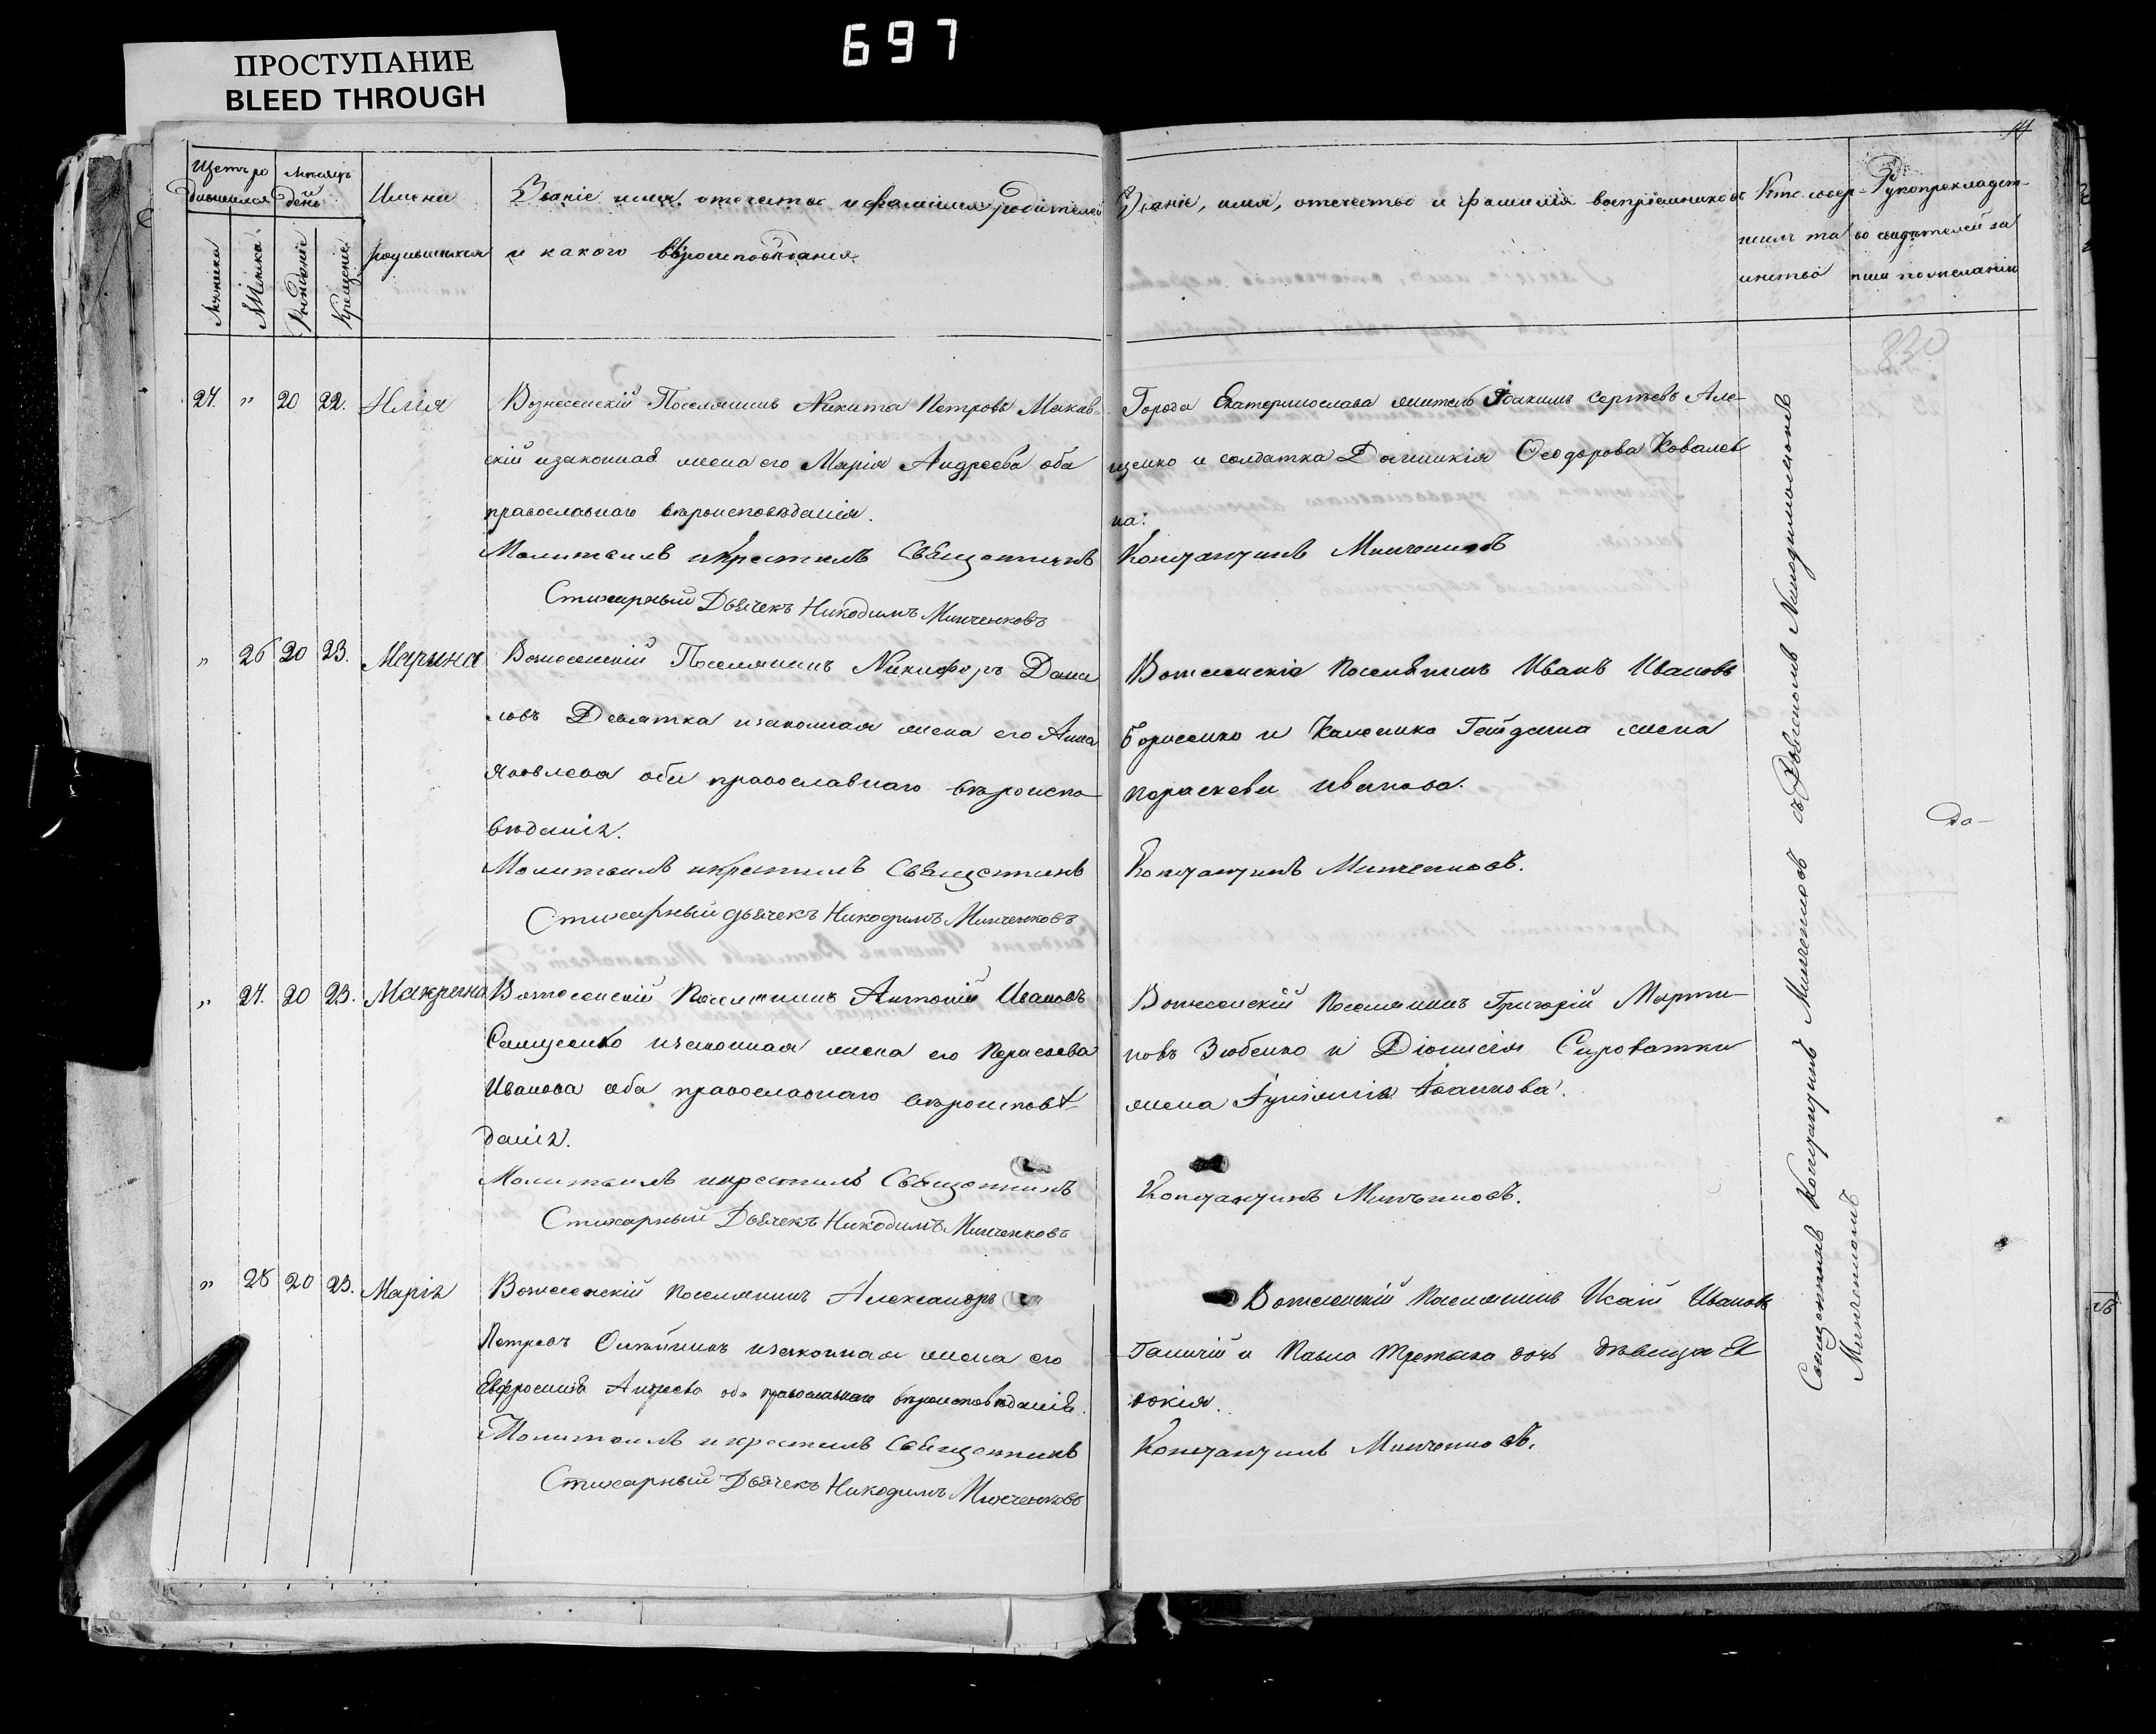 697
ПРОСТУПАНИЕ
BLEED THROUGH
14
Щетъ ро
дившихся
Мѣсяцъ
и
день
Мужеска
Женска
Рожденіе
Крещеніе
Имена
родившихся
Званіе имя, отечество и фамилія родителей
и какого вѣроисповѣданія
Званіе, имя, отечество и фамилія воспріемниковъ
Кто совер-
шилъ та
инство
Рукоприкладст-
во свидѣтелей за
писи по желанію
830
24. " 20 22. Илія
Вознесенскій Поселянинъ Никита Петровъ
скій и законная жена его Марія Андреева оба
православнаго вѣроисповѣданія.
Молитвилъ и крестилъ Священникъ
Стихарный Дьячекъ Никодимъ Минченковъ
Города Екатеринослава житель Іоакимъ Сергѣевъ Але-
щенко и солдатка Домникія Ѳеодорова Ковалев
на:
Константинъ Минченковъ
" 26 20 23. Марина
Вознесенскій Поселянинъ Никифоръ Дани
ловъ Девятка и законная жена его Анна
Яковлева оба православнаго вѣроиспо
вѣданія.
Молитвилъ и крестилъ Священникъ
Стихарный дьячекъ Никодимъ Минченковъ
Вознесенскій Поселянинъ Иванъ Ивановъ
Борисенко и жена
Параскева Иванова.
Константинъ Минченковъ.
" 27. 20 23. Макрина
Вознесенскій Поселянинъ Антоній Ивановъ
и законная жена его Параскева
Иванова оба православнаго вѣроисповѣ-
данія.
Молитвилъ и крестилъ Священникъ
Стихарный Дьячекъ Никодимъ Минченковъ
Вознесенскій Поселянинъ Григорій Марти-
новъ Зюбенко и Діонисія Сыроватки
жена Іоаннова.
Константинъ Минченковъ.
" 28 20 23. Марія
Вознесенскій Поселянинъ Александръ
Петровъ и законная жена его
Евфросинія Андреева оба православнаго вѣроисповѣданія.
Молитвилъ и крестилъ Священникъ
Стихарный Дьячекъ Никодимъ Минченковъ
Вознесенскій Поселянинъ Исаій Ивановъ
и Павла Третьяка дочь дѣвица Ев
докія.
Константинъ Минченковъ.
Священникъ Константинъ Минченковъ съ Дьячкомъ Никодимомъ
Минченкомъ